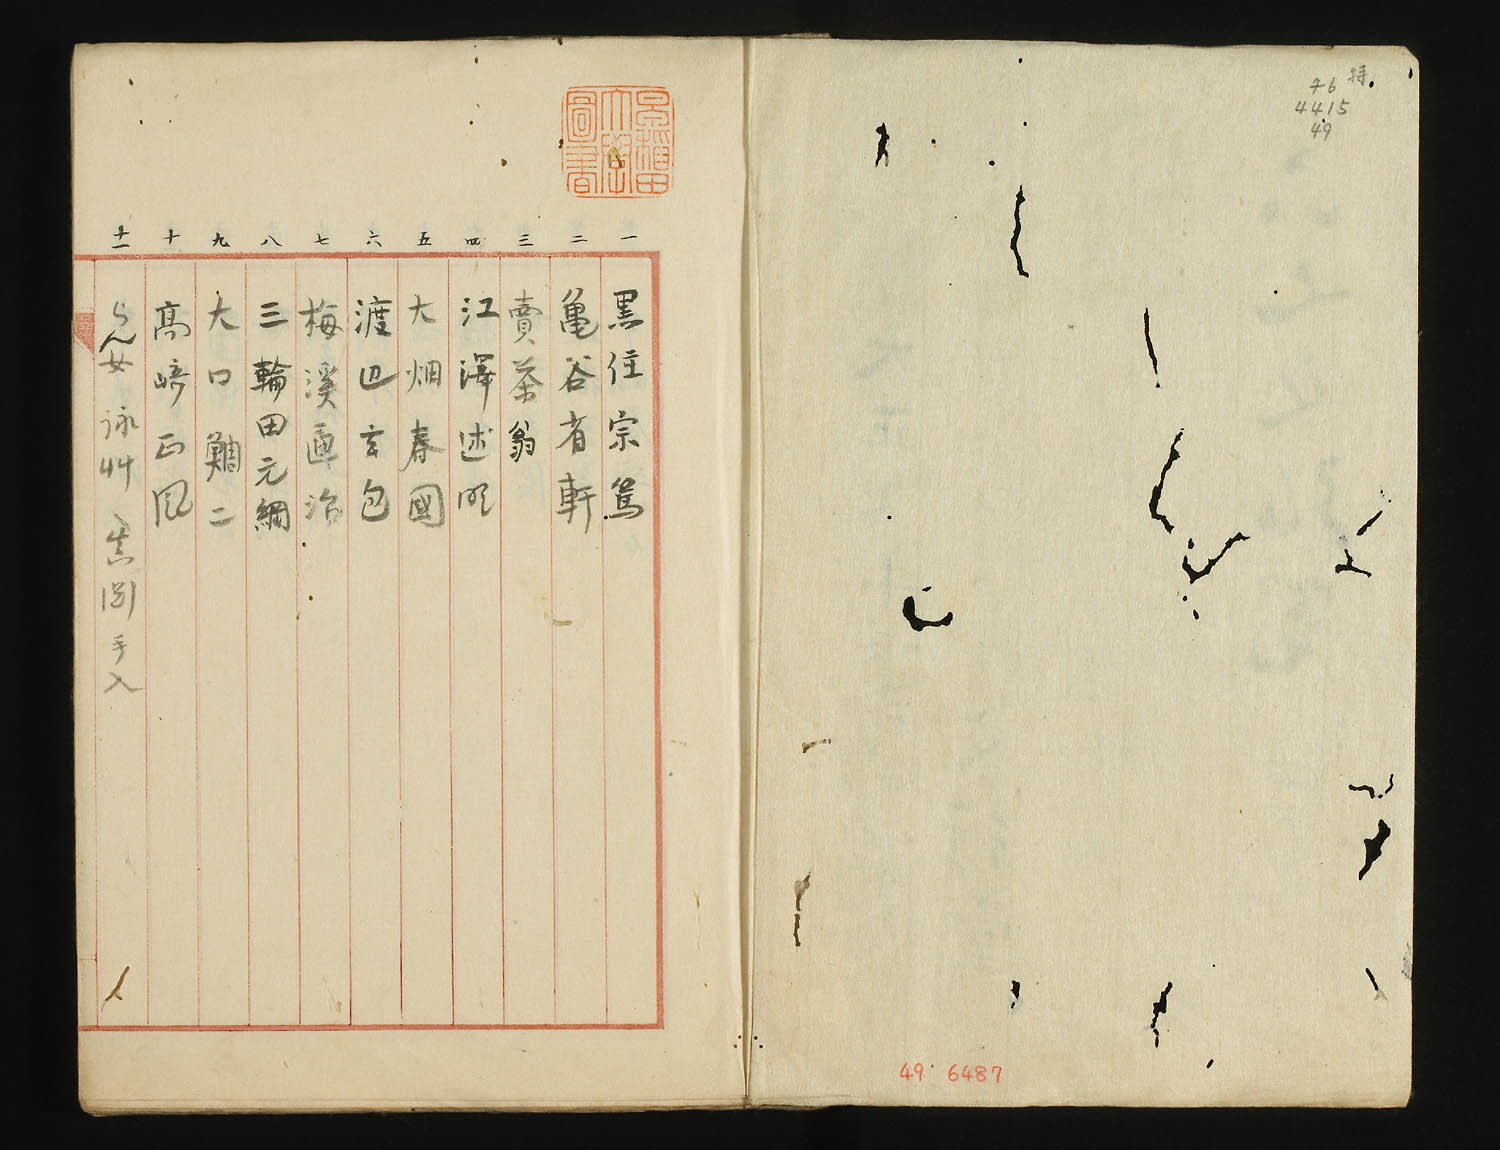 特
イ6
4415
49
49 6487
早稲田
大學
圖書
一 黒住宗篤
二 亀谷省軒
三 賣茶翁
四 江澤述明
五 大畑春國
六 渡辺玄包
七 梅溪
八 三輪田元綱
九 大口鯛二
十 高崎正風
十一 らん女 詠艸
手入